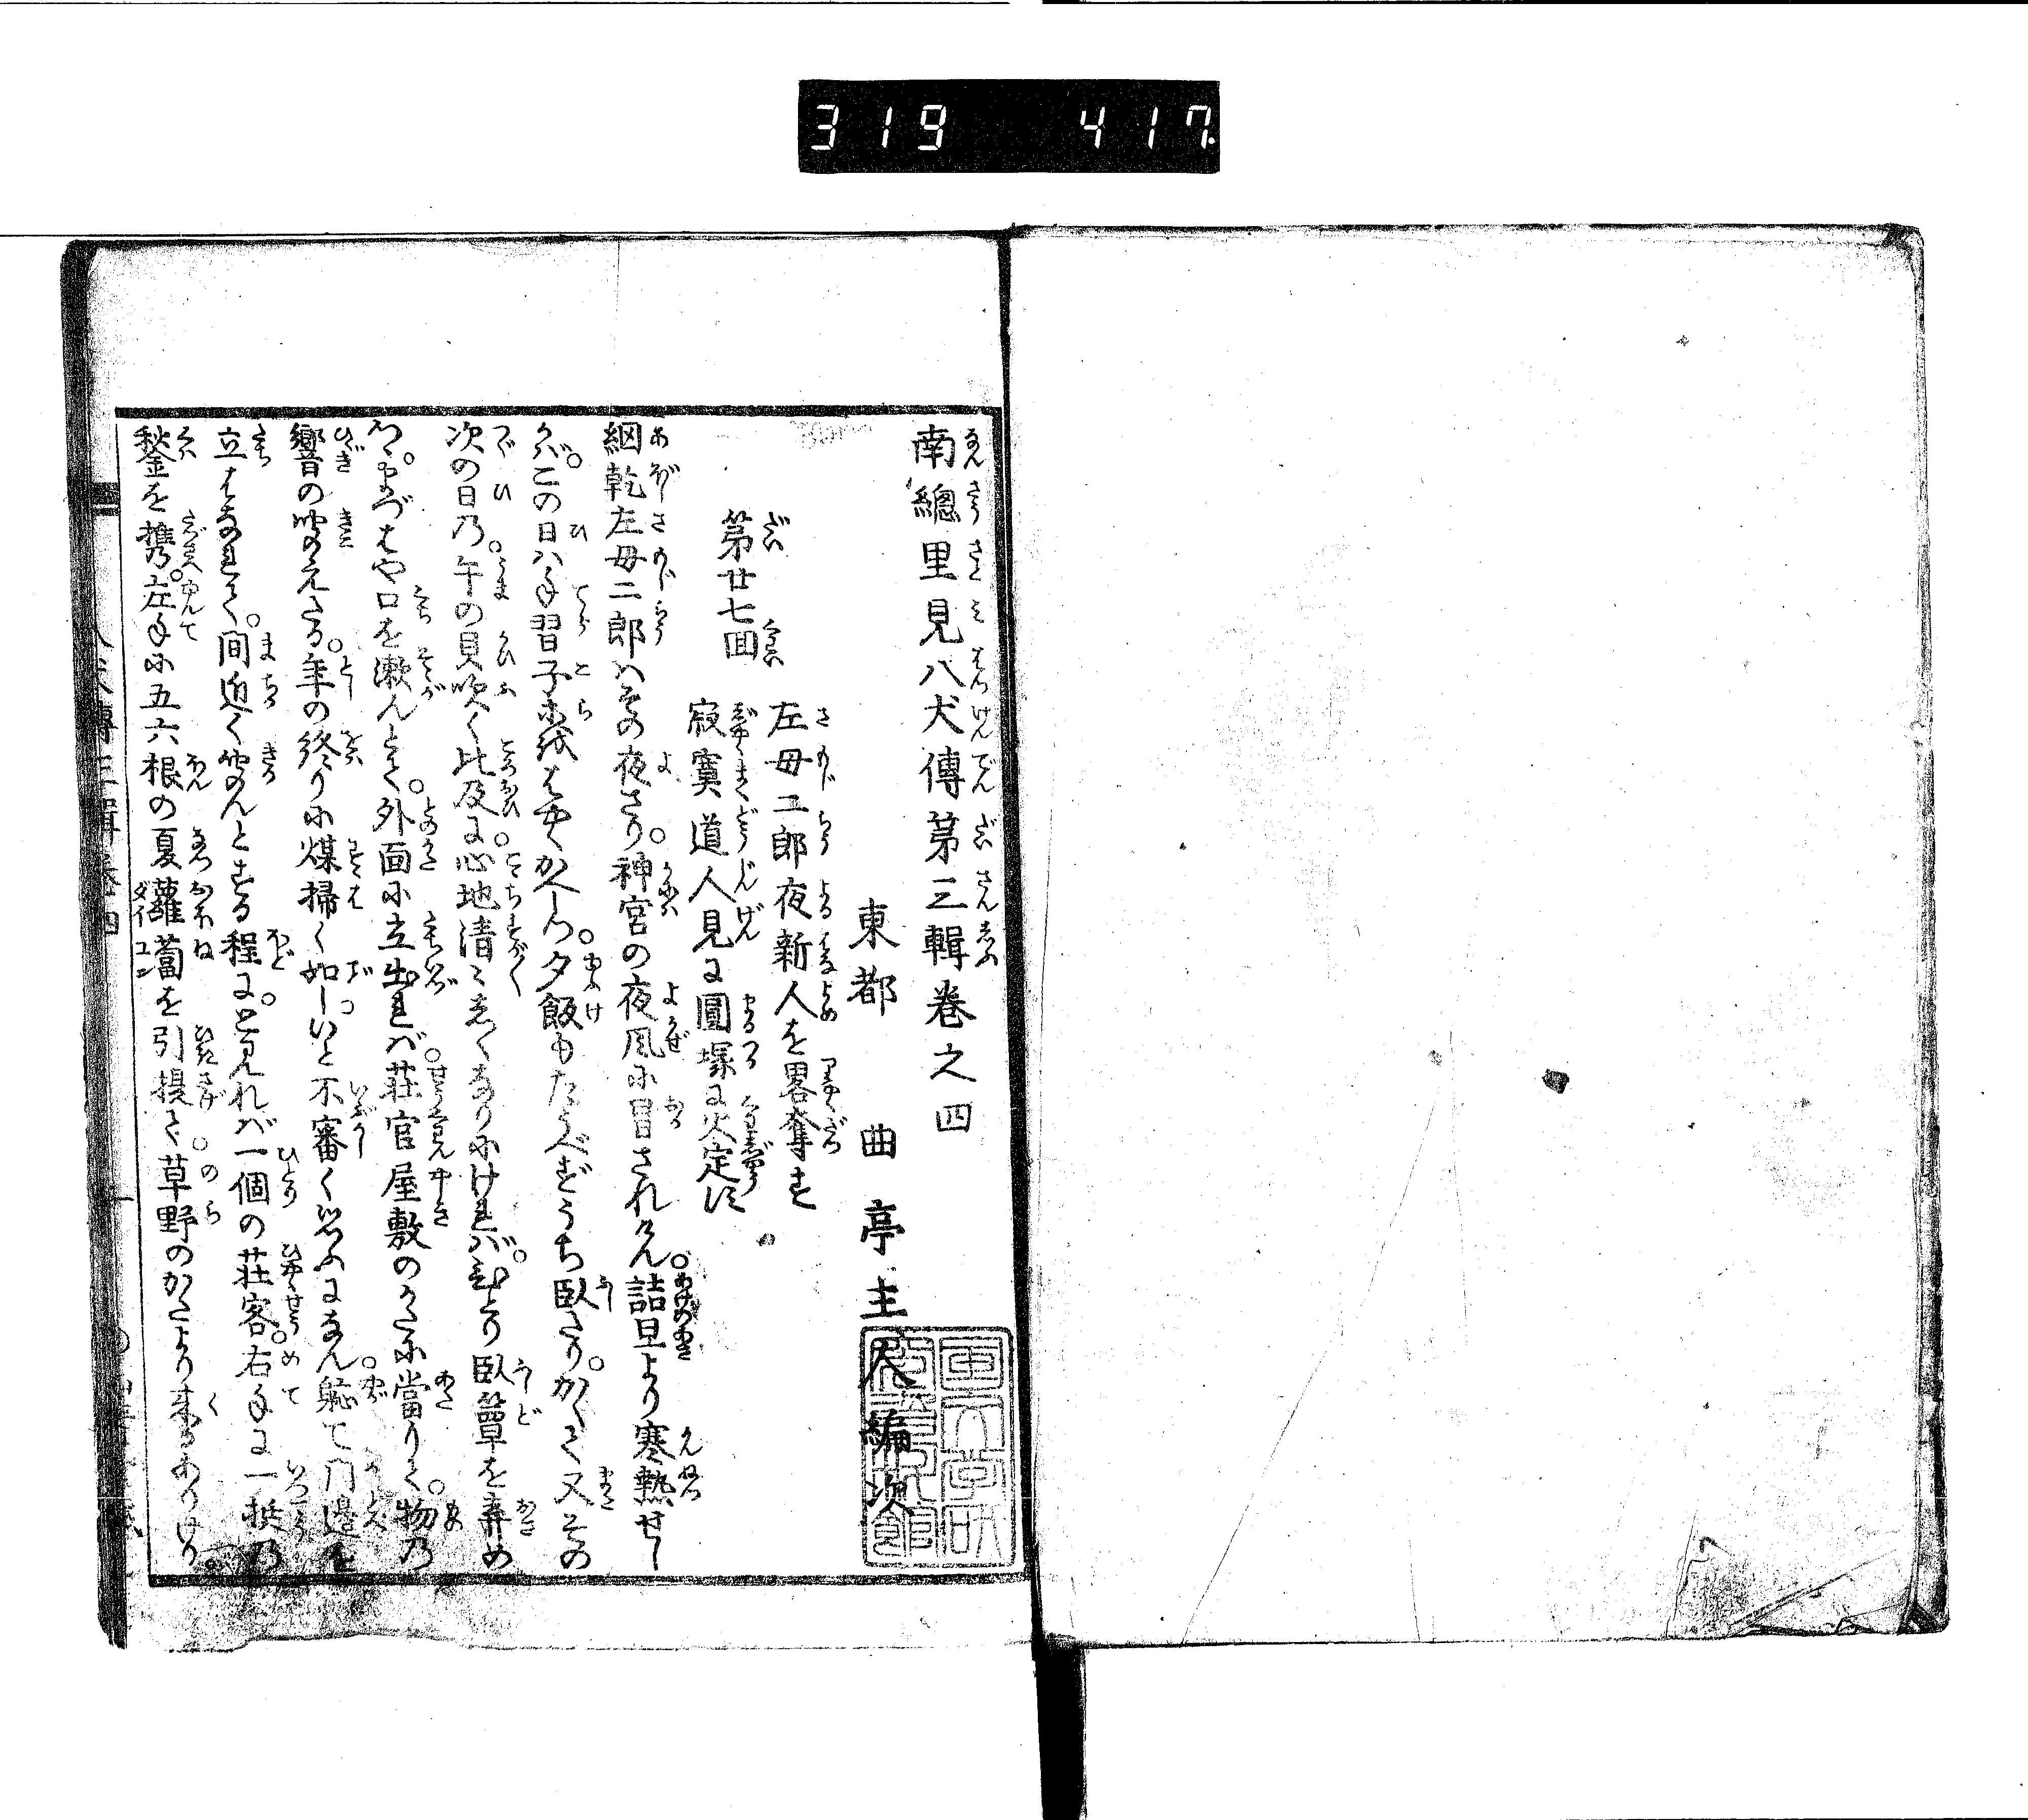 319 417
南總里見八犬傳第三輯巻之四
東都 曲亭主人編次
第廿七囘
左母二郎夜新人を畧奪す
寂寞道人見に圓塚に火定す
網乾左母二郎はその夜さり。神宮の夜風に冒されけん。詰旦より寒熱せし
かば。この日は手習子等をはやくかへしつ。夕飯もたうべずうち臥たり。かくて又その
次の日の。午の貝吹く比及に。心地清々しくなりにければ。臥簟を弃め
つ。まづはや口を漱んとて。外面に立出れば。荘官屋敷のかたに當りて。物の
響の聞えたる。年の終りに煤掃く如し。いと不審く思ふになん。軈て門邊を
立はなれて。間近く聞んとする程に。と見れば一個の荘客。右手に一挺の
鍬を携。左手に五六根の夏蘿蔔を引提て。草野のかたより来るありけり